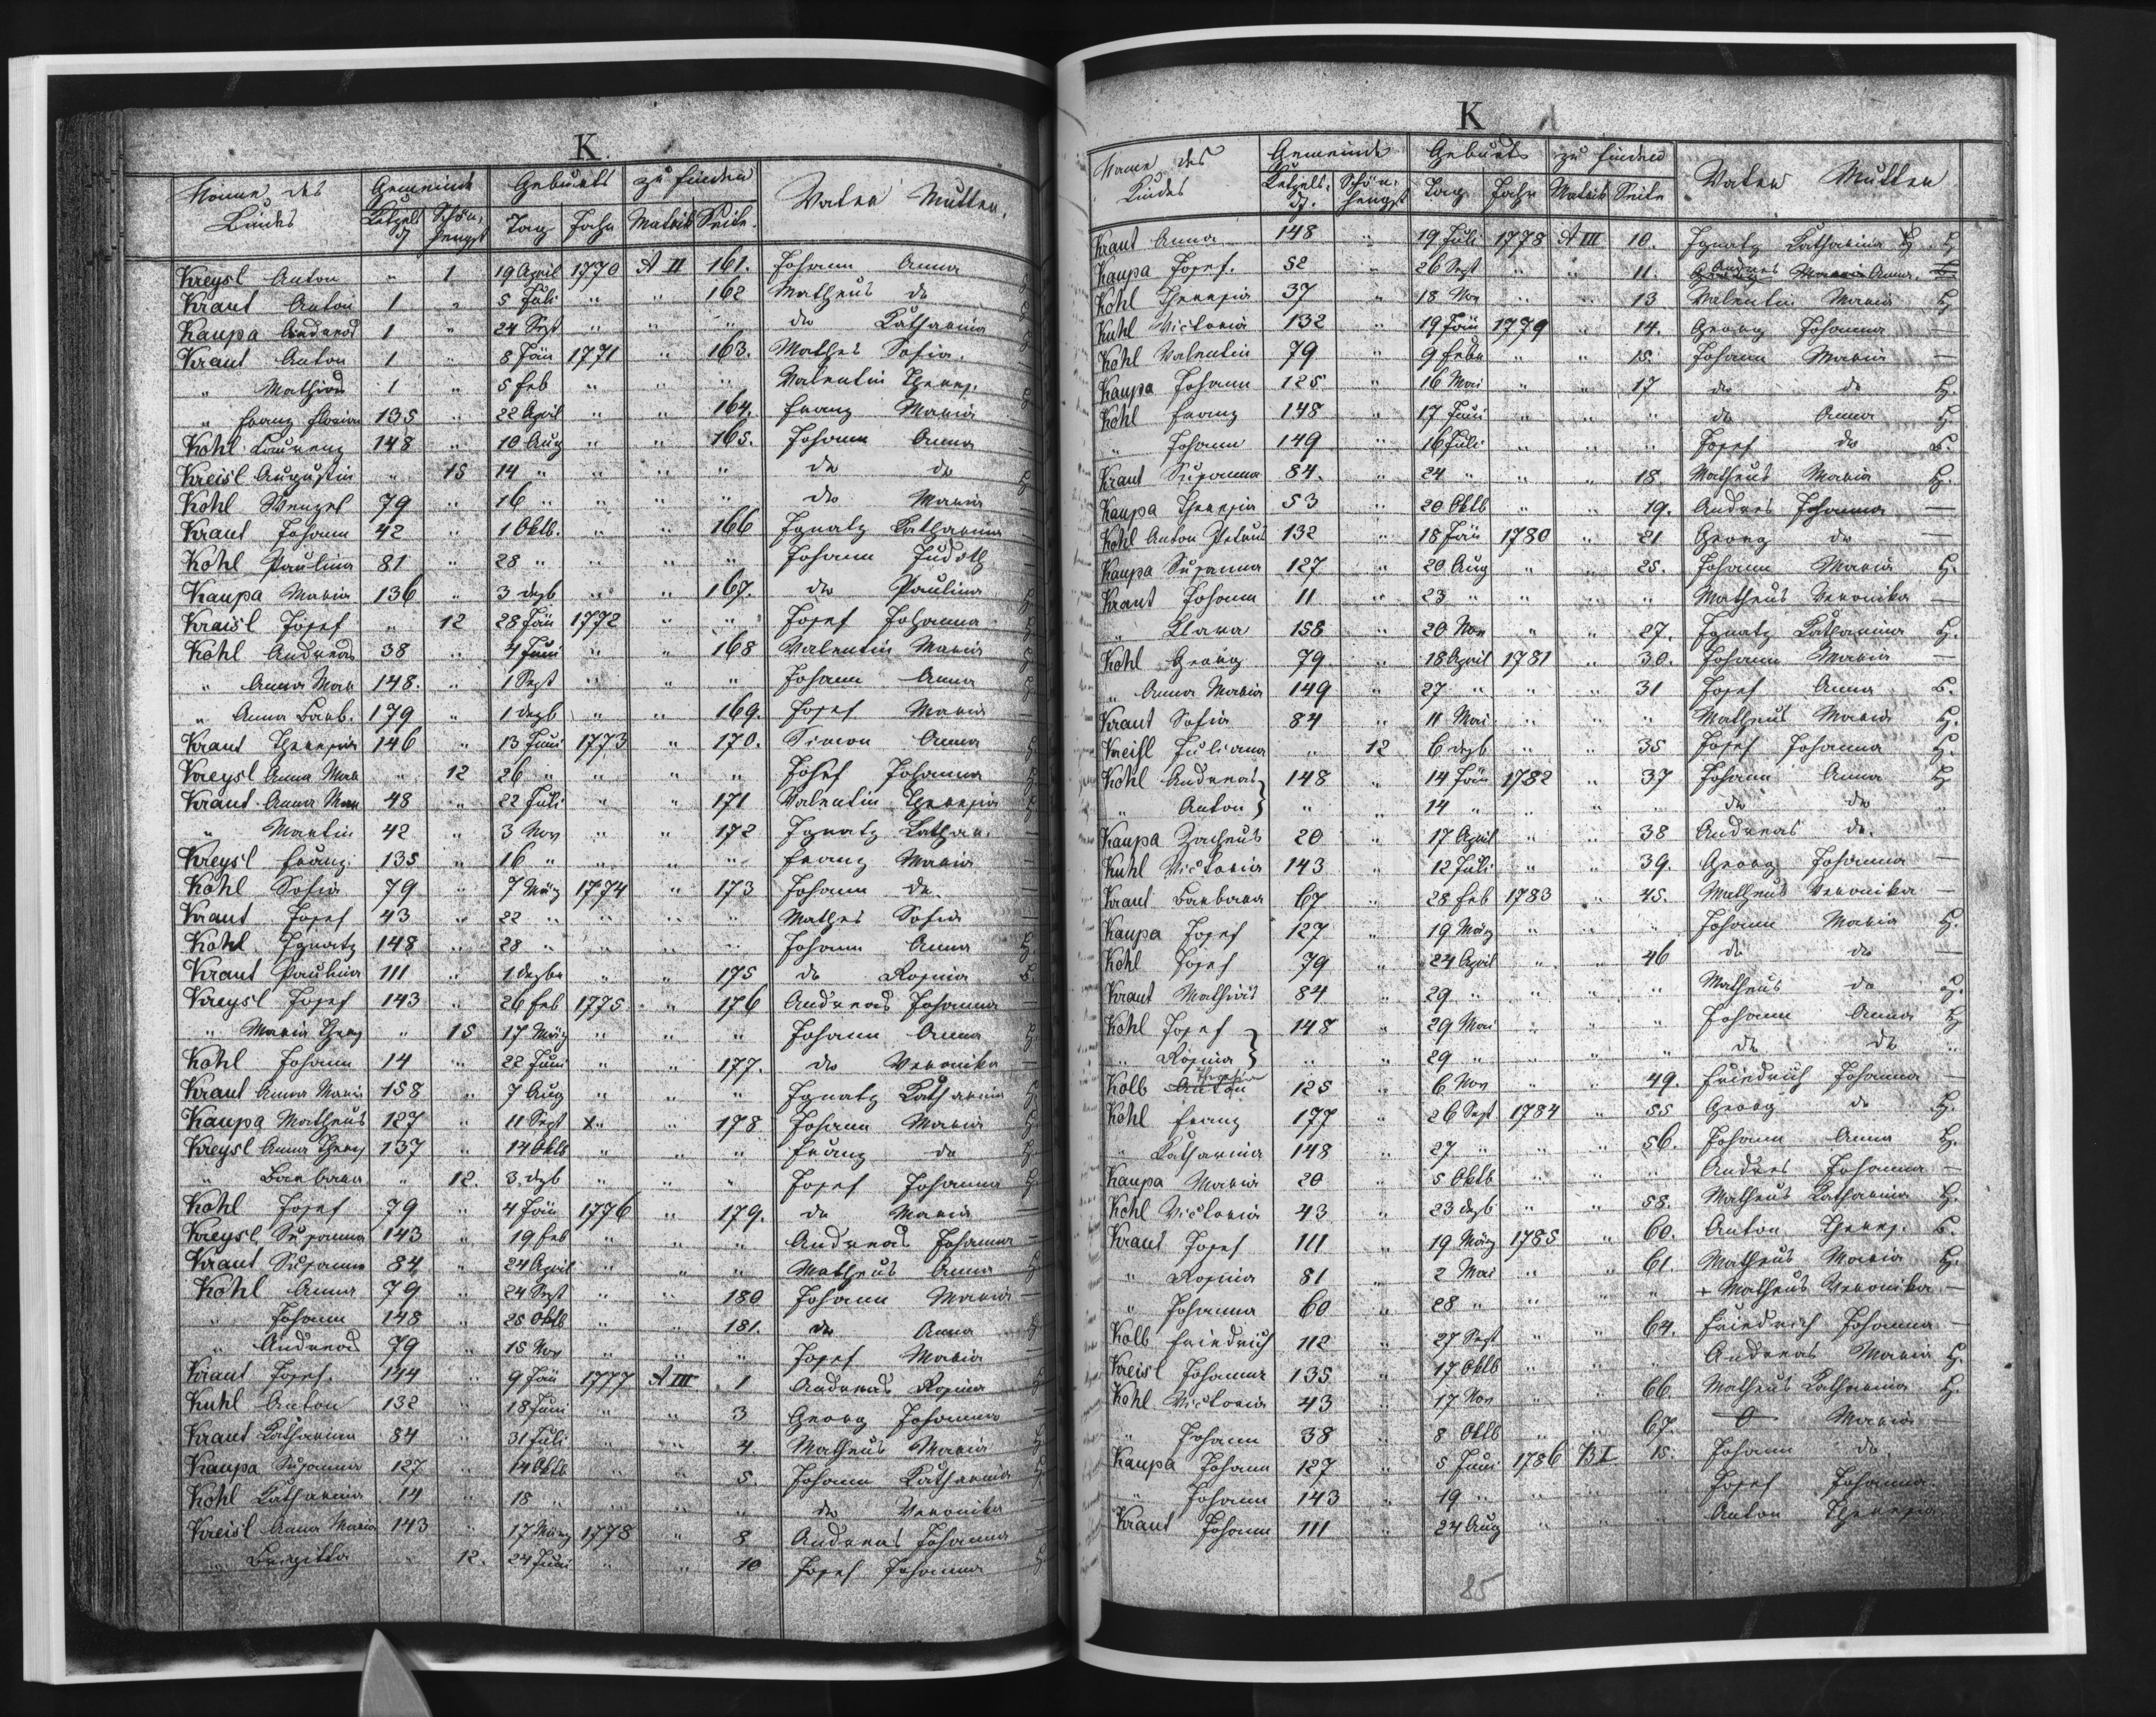 K.
Name des Gemeinde Geburts zu finden Vater Mutter.
Kindes Ketzelsdf Schönhengst Tag Jahr Matrik Seite.
Kreysl Anton " 1 19 April 1770 A II 161. Johann Anna
Kraut Anton 1 " 5 Juli " " 162 Matheus do
Kaupa Andreas 1 " 24 Sept " " " do Katharina
Kraut Anton 1 " 8 Jän 1771 " 163. Mathes Sofia.
" Mathias 1 " 5 Feb " " " Valentin Theres.
" Franz Florian 135 " 22 April " " 164. Franz Maria
Kohl Laurenz 148 " 10 Aug " " 165. Johann Anna
Kreisl Augustin " 15 14 " " " " do do
Kohl Wenzel 79 " 16 " " " " do Maria
Kraut Johann 42 " 1 Oktb. " " 166 Ignatz Katharina
Kohl Paulina 81 " 28 " " " " Johann Judith
Kaupa Maria 136 " 3 Dezb " " 167. do Paulina
Kraisl Josef " 12 28 Jän 1772 " " Josef Johanna
Kohl Andreas 38 " 4 Juni " " 168 Valentin Maria
" Anna Mar 148. " 1 Sept " " " Johann Anna
" Anna Barb. 179 " 1 Dezb " " 169. Josef Maria
Kraut Theresia 146 " 13 Juni 1773 " 170. Simon Anna
Kreysl Anna Mar " 12 26 " " " " Josef Johanna
Kraut Anna Mar 48 " 22 Juli " " 171 Valentin Theresia
" Martin 42 " 3 Nov " " 172 Ignatz Kathar.
Kreysl Franz 135 " 16 " " " " Franz Maria
Kohl Sofia 79 " 7 März 1774 " 173 Johann do.
Kraut Josef 43 " 22 " " " " Mathes Sofia
Kohl Ignatz 148 " 28 " " " " Johann Anna
Kraut Paulina 111 " 1 Dezbr " " 175 do Rosina
Kreysl Josef 143 " 26 Feb 1775 " 176 Andreas Johanna
" Maria Theres " 15 17 März " " " Johann Anna
Kohl Johann 14 " 22 Juni " " 177. do Veronika
Kraut Anna Maria 158 " 7 Aug " " " Ignatz Katharina
Kaupa Matheus 127 " 11 Sept x " " 178 Johann Maria
Kreysl Anna Theres 137 " 14 Oktb " " " Franz do
" Barbara " 12. 3. Dezb " " " Josef Johanna
Kohl Josef 79 " 4 Jän 1776 " 179. do Maria
Kreysl Susanna 143 " 19 Feb " " " Andreas Johanna
Kraut Susanna 84 " 24 April " " " Matheus Anna
Kohl Anna 79 " 24 Sept " " 180 Johann Maria
" Johann 148 " 25 Oktb " " 181. do Anna
" Andreas 79 " 15 Nov " " " Josef Maria
Kraut Josef. 144 " 9 Jän 1777 A III 1 Andreas Rosina
Kuhl Anton 132 " 18 Juni " " 3 Georg Johanna
Kraut Katharina 84 " 31 Juli " " 4. Matheus Maria
Kaupa Susanna 127 " 14 Oktb " " 5. Johann Katharina
Kohl Katharina 14 " 18 " " " " do Veronika
Kreisl Anna Maria 143 " 17 März 1778 " 8 Andreas Johanna
" Brigitta " 12. 24 Juni " " 10 Josef Johanna
K
Name des Gemeinde Geburts zu finden Vater Mutter
Kindes Ketzelsdf. Schönhengst Tag Jahr Matrik Seite
Kraut Anna 148 " 19 Juli 1778 A III 10. Ignatz Katharina H.
Kaupa Josef. 52 " 26 Sept " " 11. Andreas Anna.
Kohl Theresia 37 " 18 Nov " " 13 Valentin Maria H
Kuhl Victoria 132 " 19 Jän 1779 " 14. Georg Johanna —
Kohl Valentin 79 " 9 Febr " " 15. Johann Maria —
Kaupa Johann 125 " 16 Mai " " 17 do do H.
Kohl Franz 148 " 17 Juni " " " do Anna H.
" Johann 149 " 16 Juli " " " Josef do B.
Kraut Susanna 84. " 24 " " " 18. Matheus Maria H.
Kaupa Theresia 53 " 20 Oktb " " 19. Andres Johanna —
Kohl Anton Petrus 132 " 18 Jän 1780 " 21 Georg do —
Kaupa Susanna 127 " 20 Aug " " 25. Johann Maria H.
Kraut Johann 11 " 23 " " " " Matheus Veronika —
" Klara 158 " 20 Nov " " 27. Ignatz Katharina H.
Kohl Georg 79 " 18 April 1781 " 30. Johann Maria —
" Anna Maria 149 " 27 " " " 31 Josef Anna B.
Kraut Sofia 84 " 11 Mai " " " Matheus Maria H.
Kreisl Juliana " 12 6 Dezb " " 35 Josef Johanna H.
Kohl Andreas } 148 " 14 Jän 1782 " 37 Johann Anna H
" Anton } " " 14 " " " " do do "
Kaupa Zacheus 20 " 17 April " " 38 Andreas do.
Kuhl Victoria 143 " 12 Juli " " 39. Georg Johanna —
Kraut Barbara 67 " 28 Feb 1783 " 45. Matheus Veronika —
Kaupa Josef 127 " 19 März " " " Johann Maria H.
Kohl Josef 79 " 24 April " " 46 do do —
Kraut Mathias 84 " 29 " " " " Matheus do H.
Kohl Josef } 148 " 29 Mai " " " Johann Anna H
" Rosina } " " 29 " " " " do do "
Kolb Anton Theresia 125 " 6 Nov " " 49. Friedrich Johanna —
Kohl Franz 177 " 26 Sept 1784 " 55 Georg do H.
" Katharina 148 " 27 " " " 56. Johann Anna H.
Kaupa Maria 20 " 5 Oktb " " " Andres Johanna —
Kohl Victoria 43 " 23 Dezb " " 58. Matheus Katharina H.
Kraut Josef 111 " 19 März 1785 " 60. Anton Theres. B.
" Rosina 81 " 2 Mai " " 61. Matheus Maria H.
" Johanna 60 " 28 " " " " + Matheus Veronika —
Kolb Friedrich 112 " 27 Sept " " 64. Friedrich Johanna —
Kreisl Johanna 135 " 17 Oktb " " " Andreas Maria H.
Kohl Victoria 43 " 17 Nov " " 66. Matheus Katharina H.
" Johann 38 " 8 Oktb " " 67. 0 Maria —
Kaupa Johann 127 " 5 Juni 1786 B I 15. Johann do.
" Johann 143 " 19 " " " " Josef Johanna
Kraut Johann 111 " 24 Aug " " " Anton Theresia
85